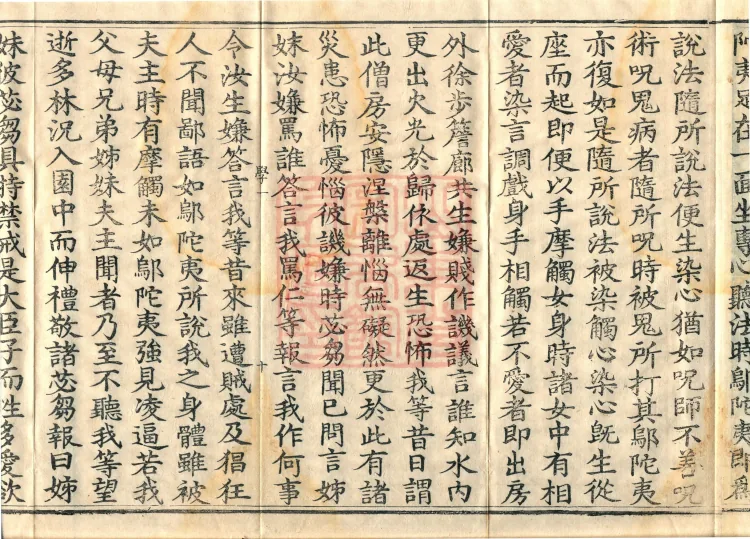 阿夷足在一面坐專心聽法時鄔陀夷即為
說法隨所說法便生染心猶如呪師不善呪
術呪鬼病者隨所呪時被鬼所打其鄔陀夷
亦復如是隨所說法被染觸心染心既生從
座而起即便以手摩觸女身時諸女中有相
愛者染言調戲身手相觸若不愛者即出房
外徐步簷廊共生嫌賤作譏議言誰知水內
更出火光於歸依處返生恐怖我等昔日謂
此僧房安隱涅槃離惱無礙然更於此有諸
災患恐怖憂惱彼譏嫌時苾芻聞已問言姊
妹汝嫌罵誰答言我罵仁等報言我作何事
學一
十
令汝生嫌答言我等昔來雖遭賊處及猖狂
人不聞鄙語如鄔陀夷所說我之身體雖被
夫主時有摩觸未如鄔陀夷強見凌逼若我
父母兄弟姊妹夫主聞者乃至不聽我等望
逝多林況入園中而伸禮敬諸苾芻報曰姊
妹彼苾芻具持禁戒是大臣子而性多愛欲